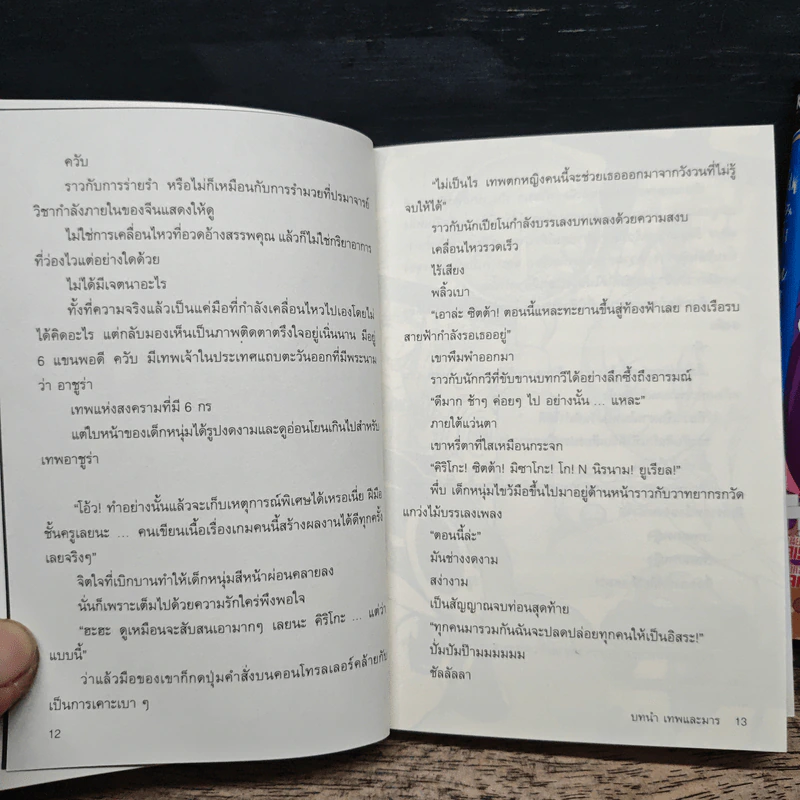 ควับ
ราวกับการร่ายรำ หรือไม่ก็เหมือนกับการรำมวยที่ปรมาจารย์
วิชากำลังภายในของจีนแสดงให้ดู
ไม่ใช่การเคลื่อนไหวที่อวดอ้างสรรพคุณ แล้วก็ไม่ใช่กริยาอาการ
ที่ว่องไวแต่อย่างใดด้วย
ไม่ได้มีเจตนาอะไร
ทั้งที่ความจริงแล้วเป็นแค่มือที่กำลังเคลื่อนไหวไปเองโดยไม่
ได้คิดอะไร แต่กลับมองเห็นเป็นภาพติดตาตรึงใจอยู่เนิ่นนาน มีอยู่
6 แขนพอดี ควับ มีเทพเจ้าในประเทศแถบตะวันออกที่มีพระนาม
ว่า อาชูร่า
เทพแห่งสงครามที่มี 6 กร
แต่ใบหน้าของเด็กหนุ่มได้รูปงดงามและดูอ่อนโยนเกินไปสำหรับ
เทพอาชูร่า
"โอ้ว! ทำอย่างนั้นแล้วจะเก็บเหตุการณ์พิเศษได้เหรอเนี่ย ฝีมือ
ชั้นครูเลยนะ ... คนเขียนเนื้อเรื่องเกมคนนี้สร้างผลงานได้ดีทุกครั้ง
เลยจริงๆ"
จิตใจที่เบิกบานทำให้เด็กหนุ่มสีหน้าผ่อนคลายลง
นั่นก็เพราะเต็มไปด้วยความรักใคร่พึงพอใจ
"ฮะฮะ ดูเหมือนจะสับสนเอามากๆ เลยนะ คิริโกะ ... แต่ว่า
แบบนี้"
ว่าแล้วมือของเขาก็กดปุ่มคำสั่งบนคอนโทรลเลอร์คล้ายกับ
เป็นการเคาะเบา ๆ
12
"ไม่เป็นไร เทพตกหญิงคนนี้จะช่วยเธอออกมาจากวังวนที่ไม่รู้
จบให้ได้"
ราวกับนักเปียโนกำลังบรรเลงบทเพลงด้วยความสงบ
เคลื่อนไหวรวดเร็ว
ไร้เสียง
พลิ้วเบา
"เอาล่ะ ซิตต้า! ตอนนี้แหละทะยานขึ้นสู่ท้องฟ้าเลย กองเรือรบ
สายฟ้ากำลังรอเธออยู่"
เขาพึมพำออกมา
ราวกับนักกวีที่ขับขานบทกวีได้อย่างลึกซึ้งถึงอารมณ์
"ดีมาก ช้าๆ ค่อยๆ ไป อย่างนั้น ... แหละ"
ภายใต้แว่นตา
เขาหรี่ตาที่ใสเหมือนกระจก
"คิริโกะ! ซิตต้า! มิซาโกะ! โก! N นิรนาม! ยูเรียล!"
พึ่บ เด็กหนุ่มไขว้มือขึ้นไปมาอยู่ด้านหน้าราวกับวาทยากรกวัด
แกว่งไม้บรรเลงเพลง
"ตอนนี้ล่ะ"
มันช่างงดงาม
สง่างาม
เป็นสัญญาณจบท่อนสุดท้าย
"ทุกคนมารวมกันฉันจะปลดปล่อยทุกคนให้เป็นอิสระ!"
ปั่มปัมป๊ามมมมมม
ชัลลัลลา
บทนำ เทพและมาร 13